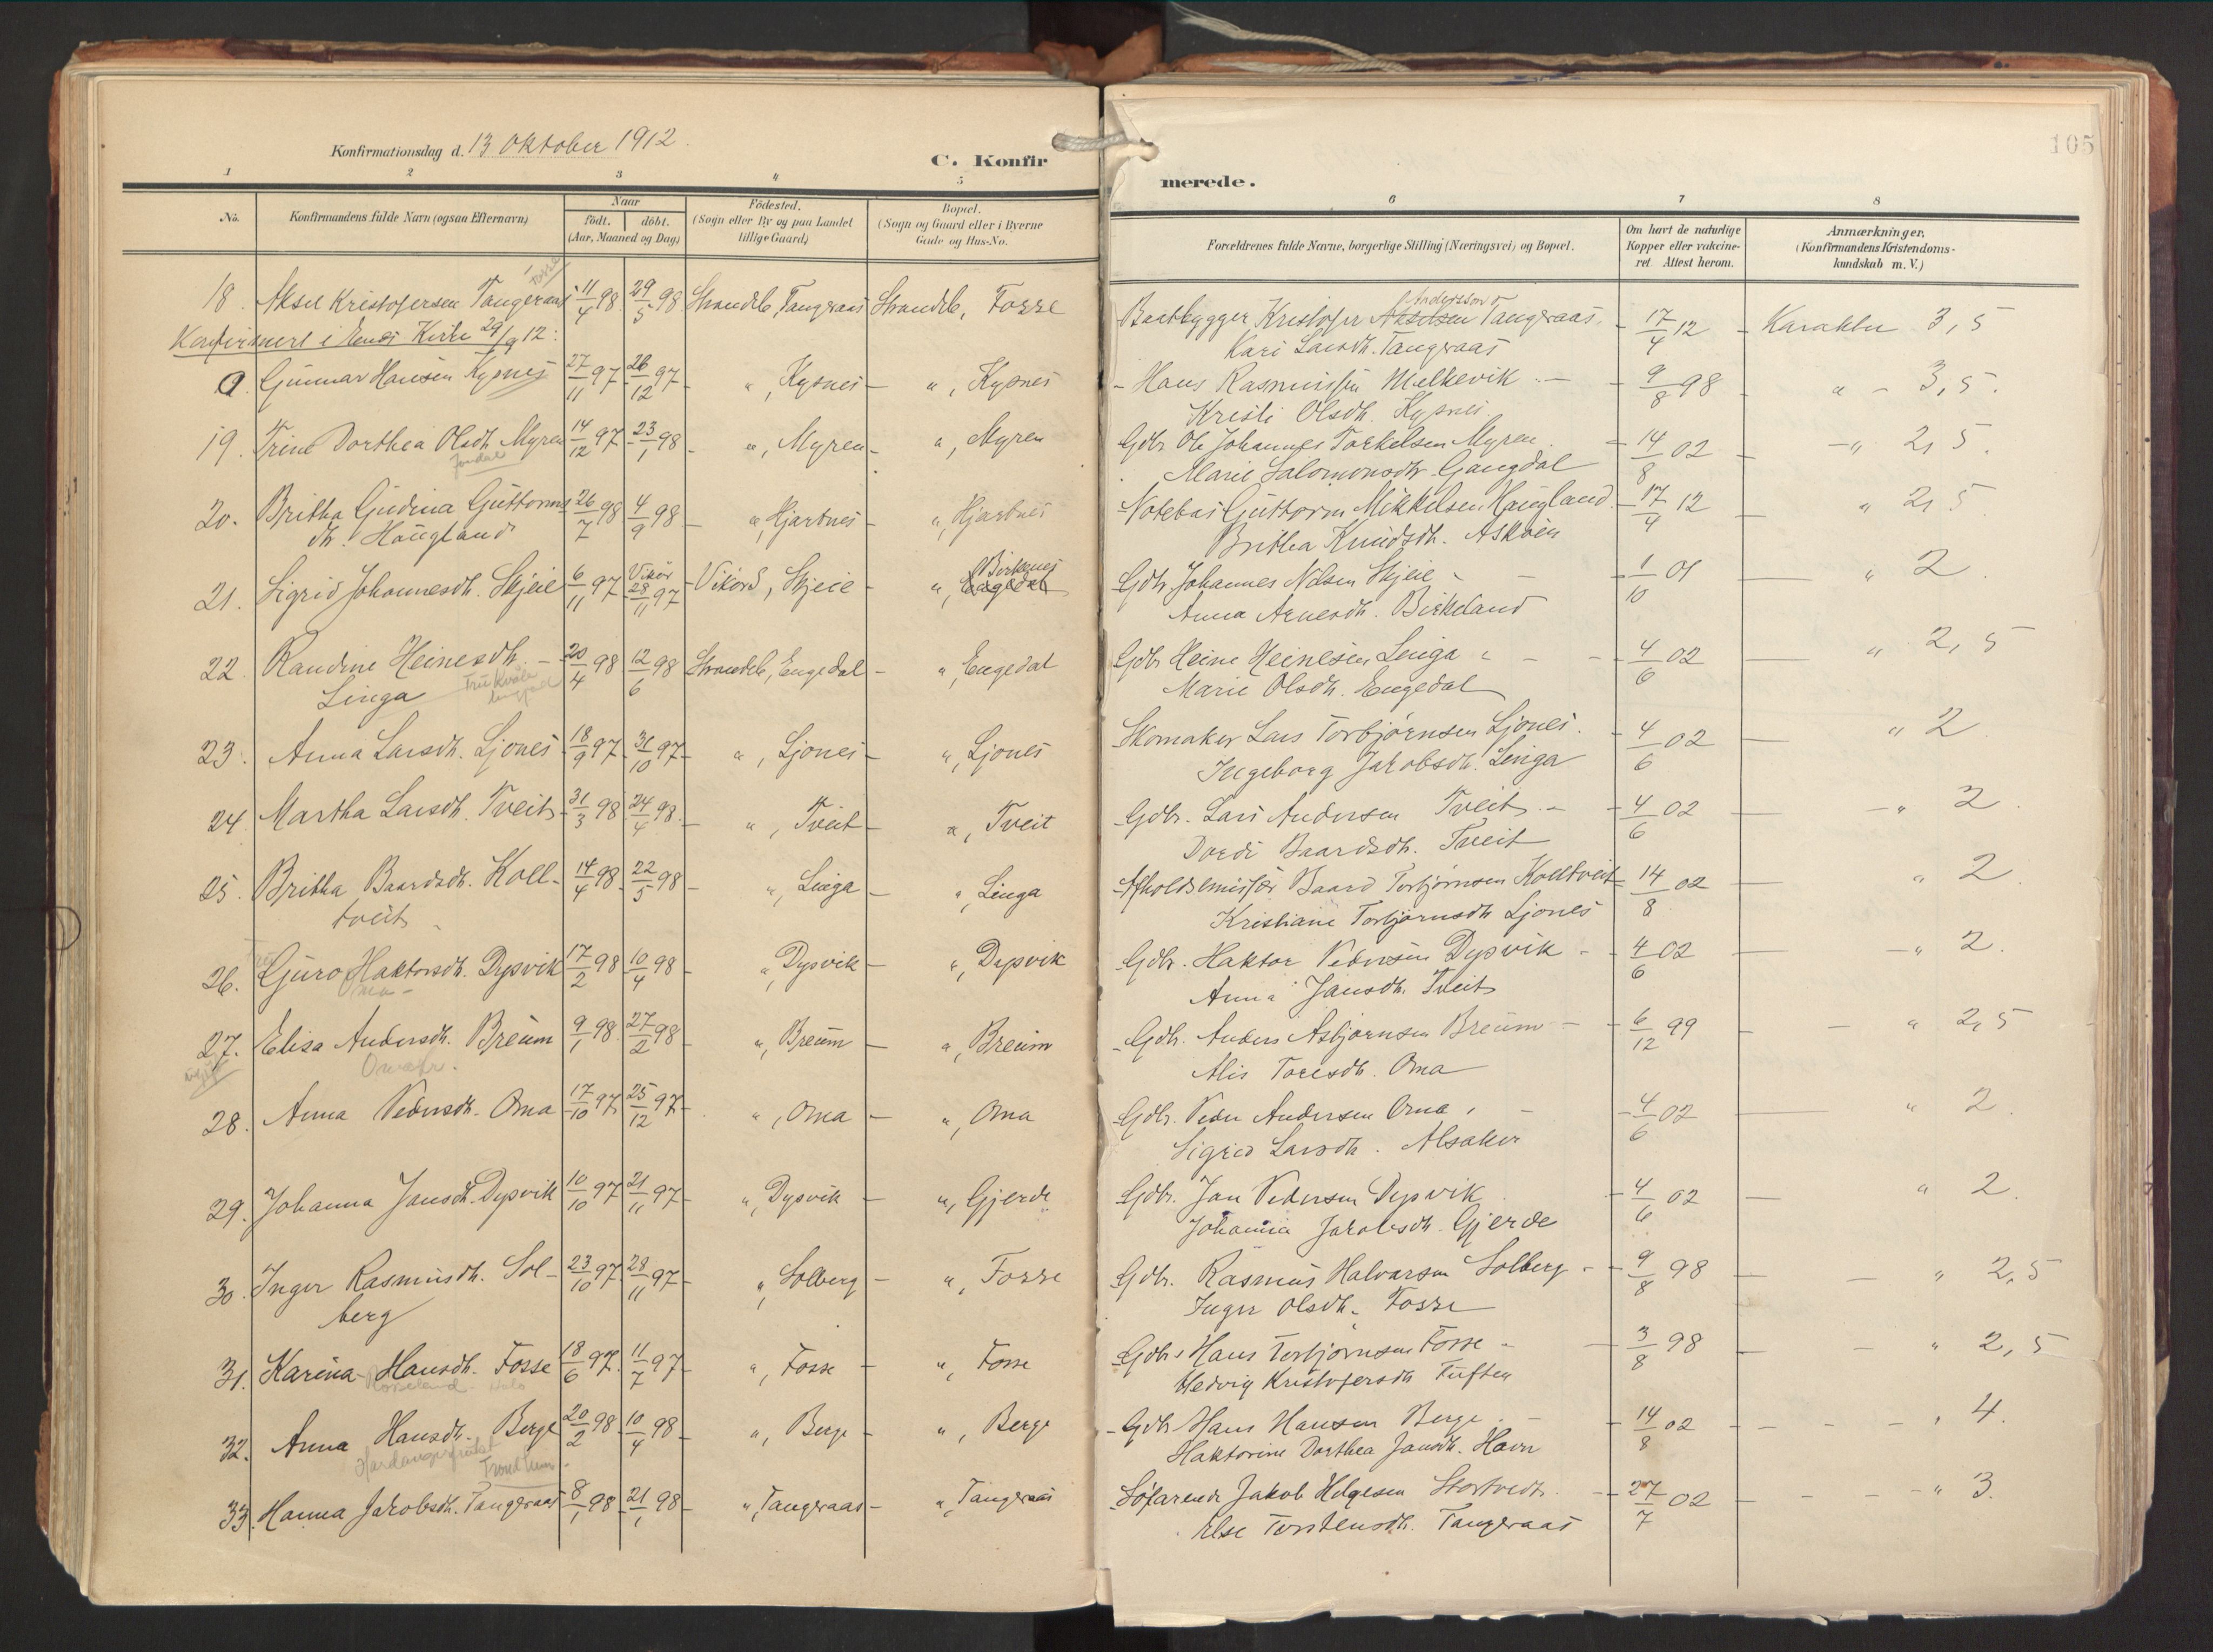 Konfirmationsdag d. 13 Oktober 1912.
C. Konfirmerede.
105
1 2 3 4 5 6 7 8
No. Konfirmandens fulde Navn (ogsaa Efternavn) Naar født. døbt. (Aar, Maaned og Dag) Fødested. (Sogn eller By og paa Landet tillige Gaard) Bopæl. (Sogn og Gaard eller i Byerne Gade og Hus-No.
Forældrenes fulde Navne, borgerlige Stilling (Næringsvei) og Bopæl. Om havt de naturlige Kopper eller vakcineret Attest herom. Anmærkninger. (Konfirmandens Kristendomskundskab m. V.)
Fosse
18. Aksel Kristofersen Tangeraas 11/4 98 29/5 98 Strandeb, Tangeraas Strandeb, Fosse Baatbygger Kristofer Akselsen Anderssøn Tangeraas. 17/4 12 Karakter 3,5
Kari Larsdh. Tangeraas
Konfirmert i Enes Kirke 29/9 12:
a. Gunnar Hansen Kysnes 27/11 97 26/12 97 " , Kysnes " , Kysnes Hans Rasmussen Melkevik 9/8 98 " 3,5.
Kristi Olsdh. Kysnes.
19. Trine Dorthea Olsdh. Myren 14/12 97 23/1 98 " , Myren " , Myren Gdbr. Ole Johannes Torkelsen Myren. 14/8 02 " 2,5.
Jondal
Marie Salomonsdh Gangdal
20. Britha Gudina Guttorms- 26/7 98 4/9 98 " , Hjartnes " , Hjartnes Notebas Guttorm Mikkelsen Haugland. 17/4 12 " 2,5
dh. Haugland Britha Knudsdh. Askvin
21. Sigrid Johannesdh. Skjeie 6/11 97 Vikør 28/11 97 Vikørs, Skjeie " , Engedal Birknes Gdbr. Johannes Nilsen Skjeie 1/10 01 " 2.
Anna Arnesdh. Birkeland
22. Randine Heinesdh. 20/4 98 12/6 98 Strandeb, Engedal " , Engedal Gdbr. Heine Heinesen Linga 4/6 02 " 2,5
Linga Marie Olsdh. Engedal
23. Anna Larsdh. Ljones 18/9 97 31/10 97 " , Ljones " , Ljones Skomaker Lars Torbjørnsen Ljones. 4/6 02 " 2
Ingeborg Jakobsdh. Linga
24. Martha Larsdh. Tveit 31/3 98 24/4 98 " , Tveit " , Tveit Gdbr. Lars Andersen Tveit 4/6 02 " 2.
Dordi Baardsdh. Tveit
25. Britha Baardsdh. Koll- 14/4 98 22/5 98 " , Linga " , Linga Afholdsemissær Baard Torbjørnsen Kolltveit 14/8 02 " 2.
tveit Kristiane Torbjørnsdh Ljones
26. Guro Haktorsdh. Dysvik 17/2 98 10/4 98 " , Dysvik " , Dysvik Gdbr. Haktor Pedersen Dysvik 4/6 02 " 2.
Oma
Anna Jansdh. Tveit
27. Elisa Andersdh. Breium 9/1 98 27/2 98 " , Breium " , Breium Gdbr. Anders Asbjørnsen Breium 6/12 99 " 2,5
Alis Toresdh. Oma
28. Anna Pedersdh. Oma 17/10 97 25/12 97 " , Oma " , Oma Gdbr. Peder Andersen Oma 4/6 02 " 2.
Sigrid Larsdh. Alsaker
29. Johanna Jansdh. Dysvik 10/10 97 21/11 97 " , Dysvik " , Gjerde Gdbr. Jan Pedersen Dysvik 4/6 02 " 2.
Johanna Jakobsdh. Gjerde
30. Inger Rasmusdh. Sol- 23/10 97 28/11 97 " , Solberg " , Fosse Gdbr. Rasmus Halvarsen Solberg 9/8 98 " 2,5
berg Inger Olsdh. Fosse
31. Karina Hansdh. Fosse 18/6 97 11/7 97 " , Fosse " , Fosse Gdbr. Hans Torbjørnsen Fosse 3/8 98 " 2,5
Hedvig Kristofersdh Tuften
32. Anna Hansdh. Berge 20/2 98 10/4 98 " , Berge " , Berge Gdbr Hans Hansen Berge 14/8 02 " 4.
Trondheim
Haktorine Dorthea Jansdh. Havn
33. Hanna Jakobsdh. Tangeraas 8/1 98 21/1 98 " , Tangeraas " , Tangeraas Søfarende Jakob Helgesen Stortvedt. 27/7 02 " 3.
Else Torstensdh. Tangeraas